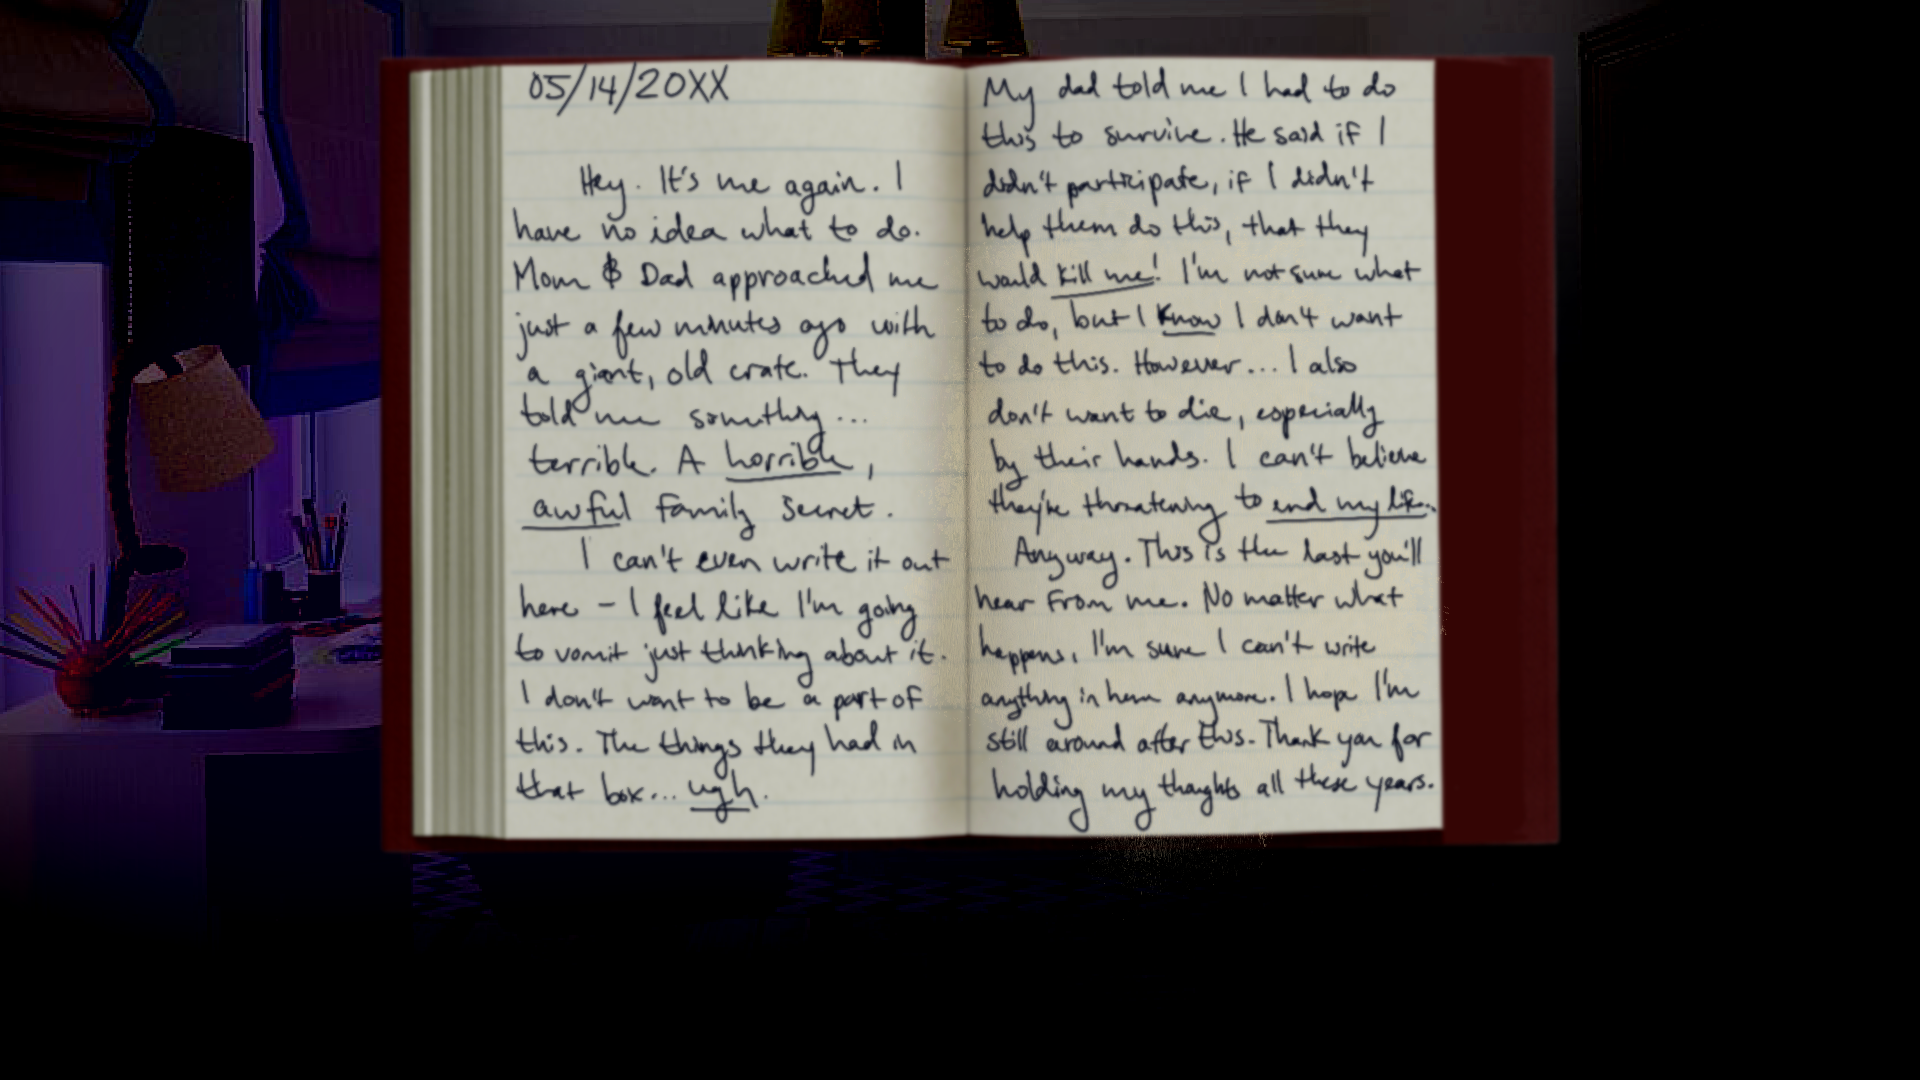 05/14/20XX
Hey. It's me again. I
have no idea what to do.
Mom & Dad approached me
just a few minutes ago with
a giant, old crate. They
told me something...
terrible. A horrible,
awful family secret.
I can't even write it out
here - I feel like I'm going
to vomit just thinking about it.
I don't want to be a part of
this. The things they had in
that box... ugh.
My dad told me I had to do
this to survive. He said if I
didn't participate, if I didn't
help them do this, that they
would kill me! I'm not sure what
to do, but I know I don't want
to do this. However... I also
don't want to die, especially
by their hands. I can't believe
they're threatening to end my life..
Anyway. This is the last you'll
hear from me. No matter what
happens, I'm sure I can't write
anything in here anymore. I hope I'm
still around after this. Thank you for
holding my thoughts all these years.